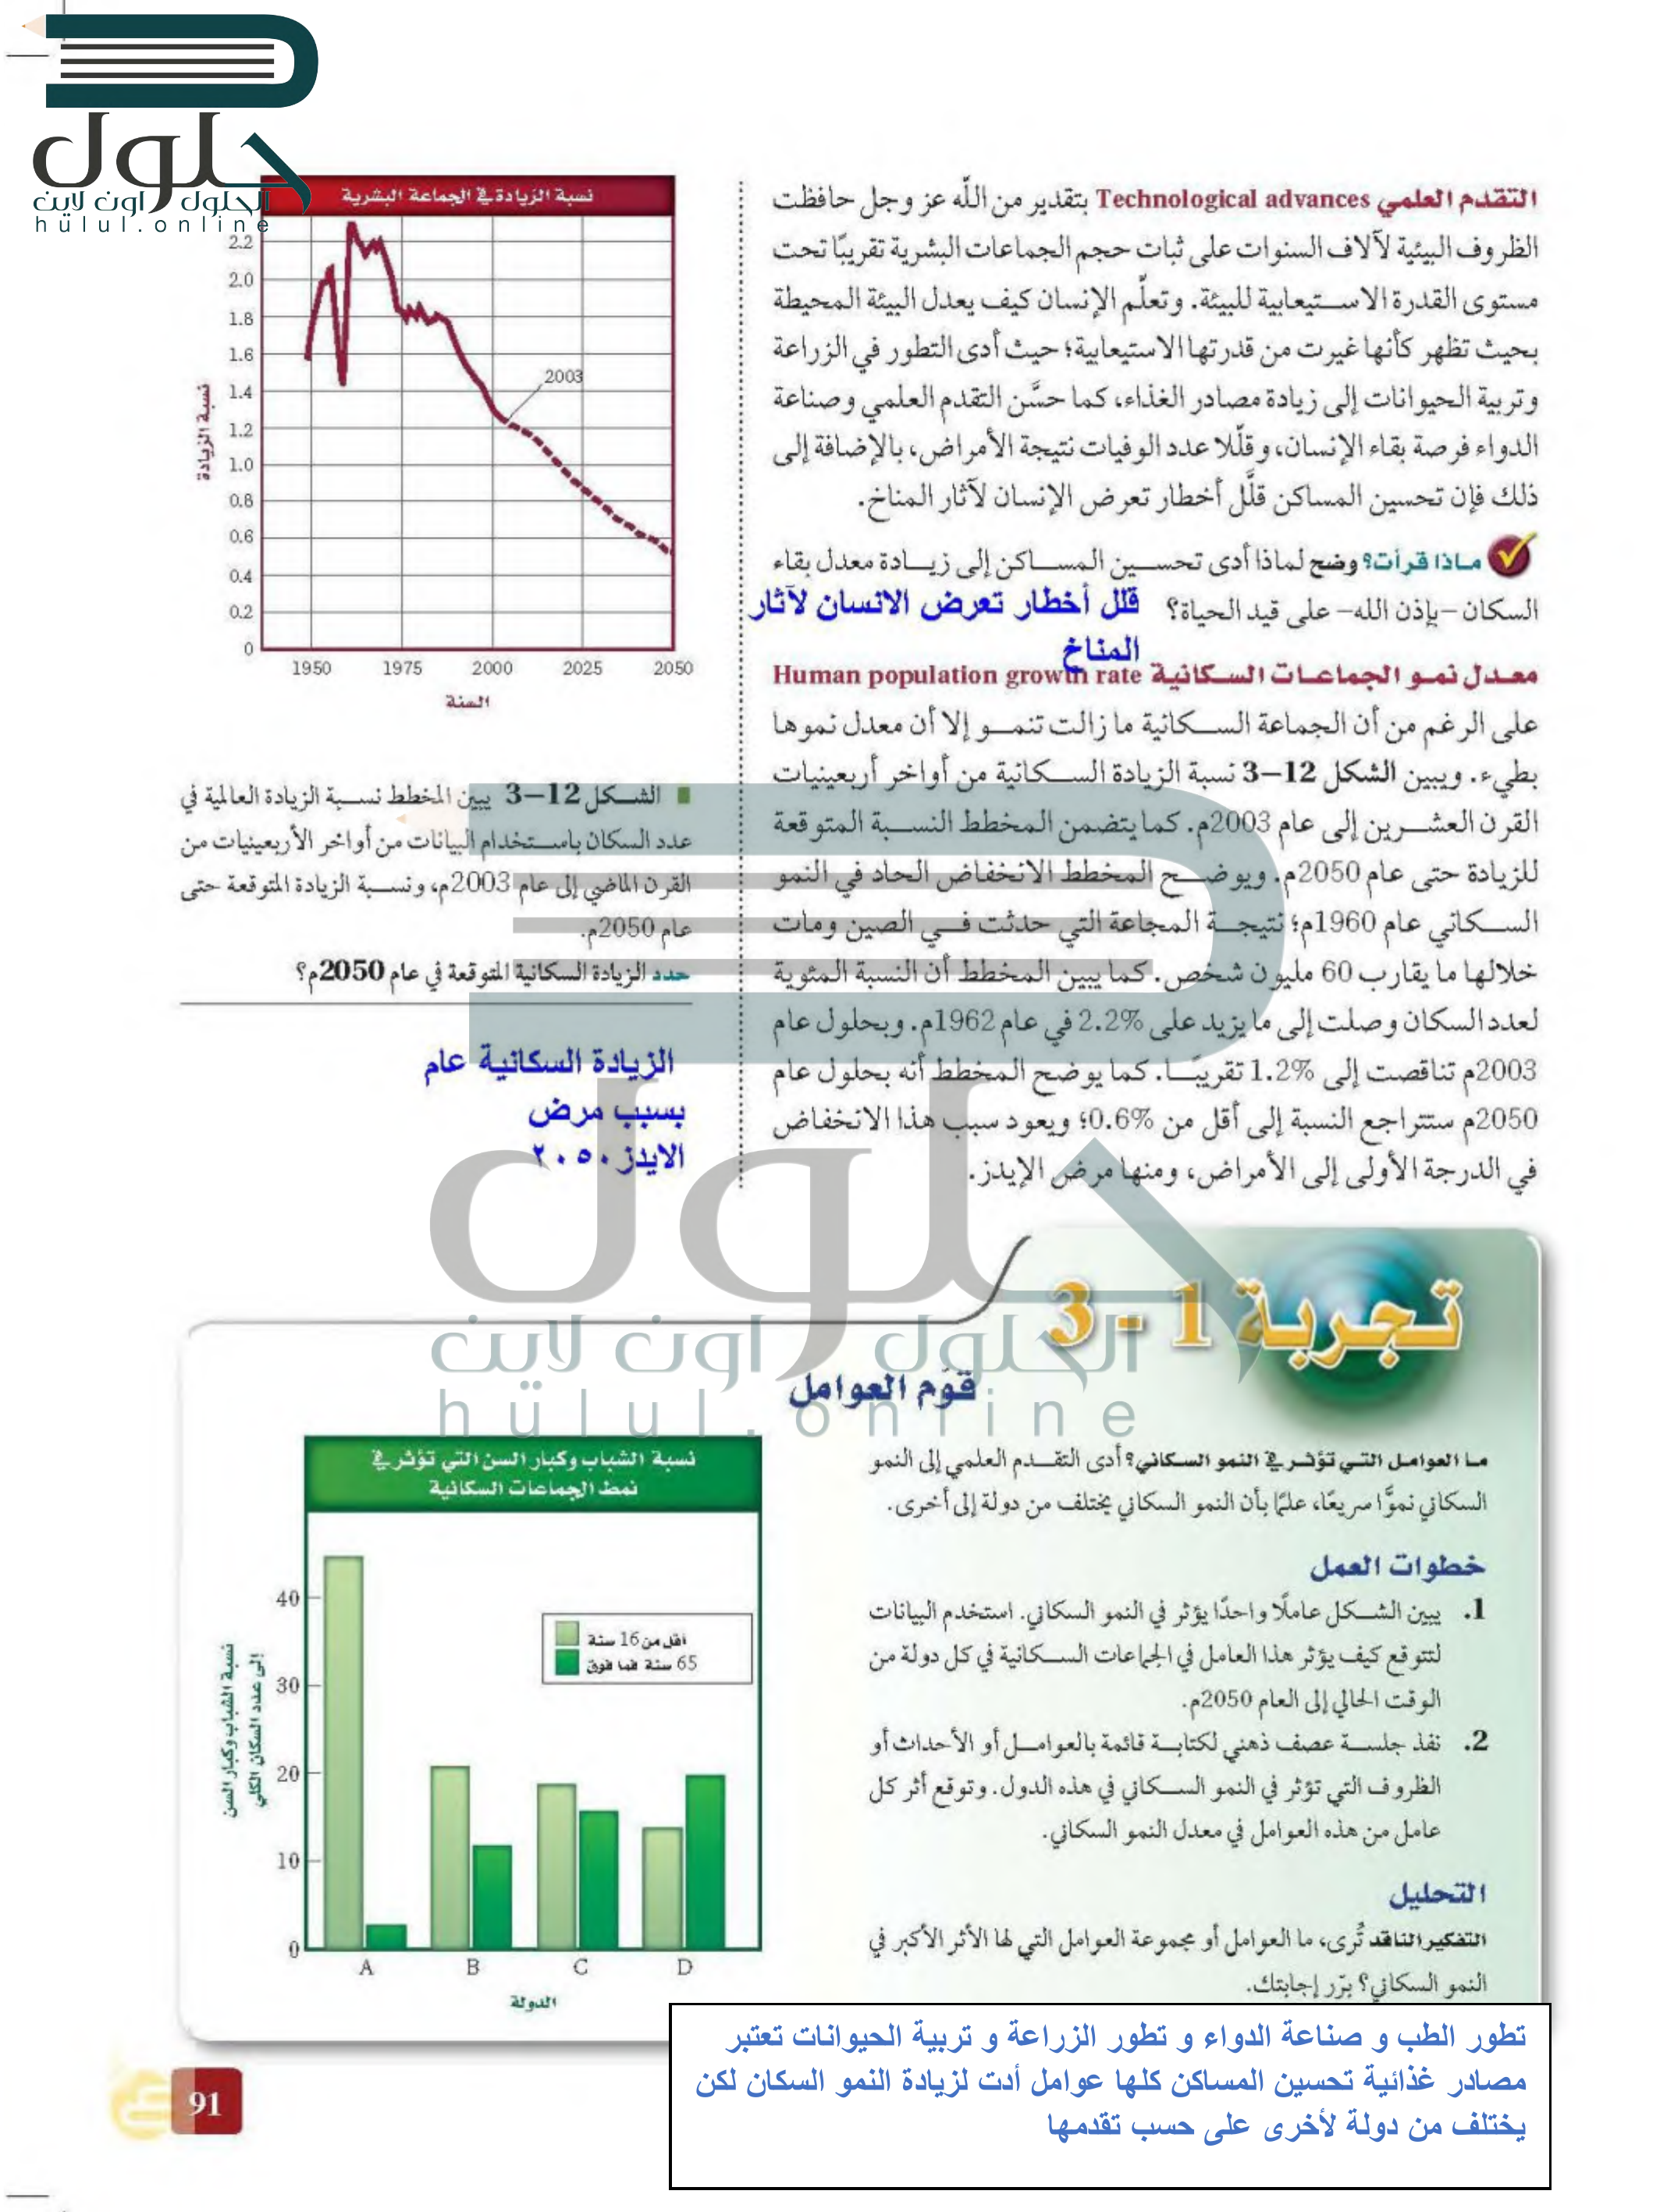 حلول
الحلول اون لاين
hulul.online
التقدم العلمي Technological advances بتقدير من الله عز وجل حافظت
الظروف البيئية لآلاف السنوات على ثبات حجم الجماعات البشرية تقريبًا تحت
مستوى القدرة الاستيعابية للبيئة. وتعلَّم الإنسان كيف يعدل البيئة المحيطة
بحيث تظهر كأنها غيرت من قدرتها الاستيعابية؛ حيث أدى التطور في الزراعة
وتربية الحيوانات إلى زيادة مصادر الغذاء، كما حسَّن التقدم العلمي وصناعة
الدواء فرصة بقاء الإنسان، وقلّلا عدد الوفيات نتيجة الأمراض، بالإضافة إلى
ذلك فإن تحسين المساكن قلَّل أخطار تعرض الإنسان لآثار المناخ.
ماذا قرأت؟ وضح لماذا أدى تحسين المساكن إلى زيادة معدل بقاء
السكان -بإذن الله- على قيد الحياة؟
قلل أخطار تعرض الانسان لآثار
المناخ
معدل نمو الجماعات السكانية Human population growth rate
على الرغم من أن الجماعة السكانية ما زالت تنمو إلا أن معدل نموها
بطيء. ويبين الشكل 12–3 نسبة الزيادة السكانية من أواخر أربعينيات
القرن العشرين إلى عام 2003م. كما يتضمن المخطط النسبة المتوقعة
للزيادة حتى عام 2050م. ويوضح المخطط الانخفاض الحاد في النمو
السكاني عام 1960م؛ نتيجة المجاعة التي حدثت في الصين ومات
خلالها ما يقارب 60 مليون شخص. كما يبين المخطط أن النسبة المئوية
لعدد السكان وصلت إلى ما يزيد على %2.2 في عام 1962م. وبحلول عام
2003م تناقصت إلى %1.2 تقريبًا. كما يوضح المخطط أنه بحلول عام
2050م ستتراجع النسبة إلى أقل من %0.6؛ ويعود سبب هذا الانخفاض
في الدرجة الأولى إلى الأمراض، ومنها مرض الإيدز.
نسبة الزيادة في الجماعة البشرية
2.2
2.0
1.8
1.6
1.4
1.2
1.0
0.8
0.6
0.4
0.2
0
نسبة الزيادة
2003
1950 1975 2000 2025 2050
السنة
الشكل 12–3 يبين المخطط نسبة الزيادة العالمية في
عدد السكان باستخدام البيانات من أواخر الأربعينيات من
القرن الماضي إلى عام 2003م، ونسبة الزيادة المتوقعة حتى
عام 2050م.
حدد الزيادة السكانية المتوقعة في عام 2050م؟
الزيادة السكانية عام
بسبب مرض
الايدز٢٠٥٠
حلول
الحلول اون لاين
hülul.online
تجربة 1 - 3
قوّم العوامل
ما العوامل التي تؤثر في النمو السكاني؟ أدى التقدم العلمي إلى النمو
السكاني نموًّا سريعًا، علمًا بأن النمو السكاني يختلف من دولة إلى أخرى.
خطوات العمل
1. يبين الشكل عاملًا واحدًا يؤثر في النمو السكاني. استخدم البيانات
لتتوقع كيف يؤثر هذا العامل في الجماعات السكانية في كل دولة من
الوقت الحالي إلى العام 2050م.
2. نفذ جلسة عصف ذهني لكتابة قائمة بالعوامل أو الأحداث أو
الظروف التي تؤثر في النمو السكاني في هذه الدول. وتوقع أثر كل
عامل من هذه العوامل في معدل النمو السكاني.
التحليل
التفكير الناقد تُرى، ما العوامل أو مجموعة العوامل التي لها الأثر الأكبر في
النمو السكاني؟ برّر إجابتك.
نسبة الشباب وكبار السن التي تؤثر في
نمط الجماعات السكانية
نسبة الشباب وكبار السن
إلى عدد السكان الكلي
40
30
20
10
0
أقل من 16 سنة
65 سنة فما فوق
A B C D
الدولة
تطور الطب و صناعة الدواء و تطور الزراعة و تربية الحيوانات تعتبر
مصادر غذائية تحسين المساكن كلها عوامل أدت لزيادة النمو السكان لكن
يختلف من دولة لأخرى على حسب تقدمها
91